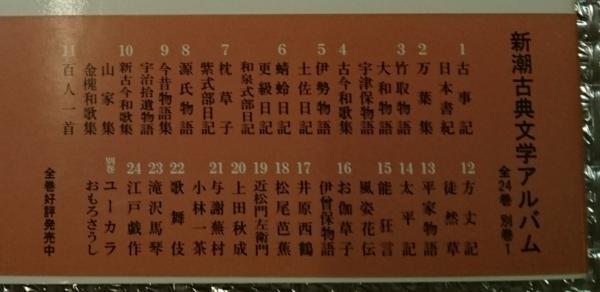 新潮古典文学アルバム
全24巻 別巻1
1 古事記
日本書紀
2 万葉集
3 竹取物語
大和物語
宇津保物語
4 古今和歌集
5 伊勢物語
土佐日記
6 蜻蛉日記
更級日記
和泉式部日記
7 枕草子
紫式部日記
8 源氏物語
9 今昔物語集
宇治拾遺物語
10 新古今和歌集
山家集
金槐和歌集
11 百人一首
12 方丈記
徒然草
13 平家物語
14 太平記
15 能狂言
風姿花伝
16 お伽草子
伊曾保物語
17 井原西鶴
18 松尾芭蕉
19 近松門左衛門
20 上田秋成
21 与謝蕪村
小林一茶
22 歌舞伎
23 滝沢馬琴
24 江戸戯作
別巻 ユーカラ
おもろさうし
全巻好評発売中